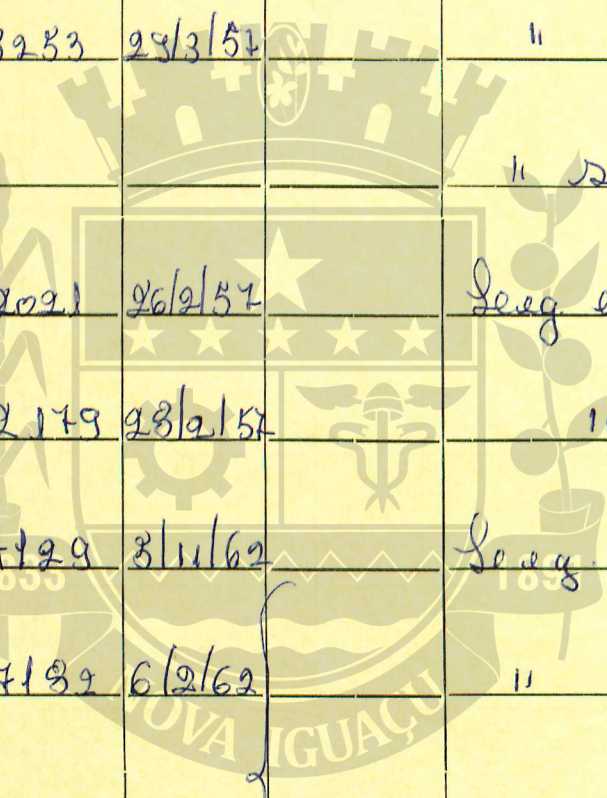 3253 29/3/57 "
"
2021 26/2/57 Leeg
2179 28/2/57
7129 3/11/62 Leeg.
7182 6/2/62 "
1833 1891
NOVA IGUAÇU